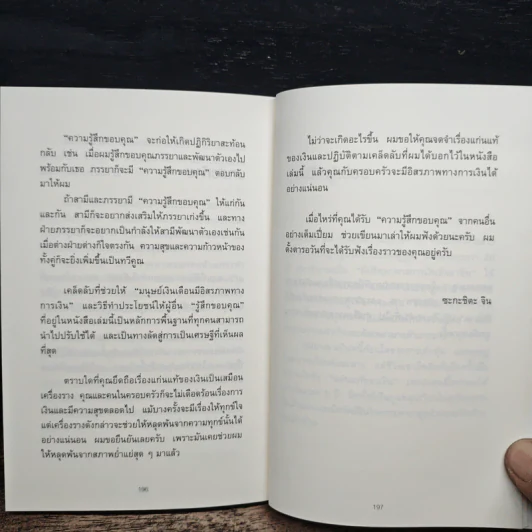 “ความรู้สึกขอบคุณ” จะก่อให้เกิดปฏิกิริยาสะท้อน
กลับ เช่น เมื่อผมรู้สึกขอบคุณภรรยาและพัฒนาตัวเองไป
พร้อมกับเธอ ภรรยาก็จะมี “ความรู้สึกขอบคุณ” ตอบกลับ
มาให้ผม
ถ้าสามีและภรรยามี “ความรู้สึกขอบคุณ” ให้แก่กัน
และกัน สามีก็จะอยากส่งเสริมให้ภรรยาเก่งขึ้น และทาง
ฝ่ายภรรยาก็จะอยากเป็นกำลังให้สามีพัฒนาตัวเองเช่นกัน
เมื่อต่างฝ่ายต่างก็ใจตรงกัน ความสุขและความก้าวหน้าของ
ทั้งคู่ก็จะยิ่งเพิ่มขึ้นเป็นทวีคูณ
เคล็ดลับที่ช่วยให้ “มนุษย์เงินเดือนมีอิสรภาพทาง
การเงิน” และวิธีทำประโยชน์ให้ผู้อื่น “รู้สึกขอบคุณ”
ที่อยู่ในหนังสือเล่มนี้เป็นหลักการพื้นฐานที่ทุกคนสามารถ
นำไปปรับใช้ได้ และเป็นทางลัดสู่การเป็นเศรษฐีที่เห็นผล
ที่สุด
ตราบใดที่คุณยึดถือเรื่องแก่นแท้ของเงินเป็นเสมือน
เครื่องราง คุณและคนในครอบครัวก็จะไม่เดือดร้อนเรื่องการ
เงินและมีความสุขตลอดไป แม้บางครั้งจะมีเรื่องให้ทุกข์ใจ
แต่เครื่องรางดังกล่าวจะช่วยให้หลุดพ้นจากความทุกข์นั้นได้
อย่างแน่นอน ผมขอยืนยันเลยครับ เพราะมันเคยช่วยผม
ให้หลุดพ้นจากสภาพย่ำแย่สุด ๆ มาแล้ว
196
ไม่ว่าจะเกิดอะไรขึ้น ผมขอให้คุณจดจำเรื่องแก่นแท้
ของเงินและปฏิบัติตามเคล็ดลับที่ผมได้บอกไว้ในหนังสือ
เล่มนี้ แล้วคุณกับครอบครัวจะมีอิสรภาพทางการเงินได้
อย่างแน่นอน
เมื่อไหร่ที่คุณได้รับ “ความรู้สึกขอบคุณ” จากคนอื่น
อย่างเต็มเปี่ยม ช่วยเขียนมาเล่าให้ผมฟังด้วยนะครับ ผม
ตั้งตารอวันที่จะได้รับฟังเรื่องราวของคุณอยู่ครับ
ซะกะชิตะ จิน
197